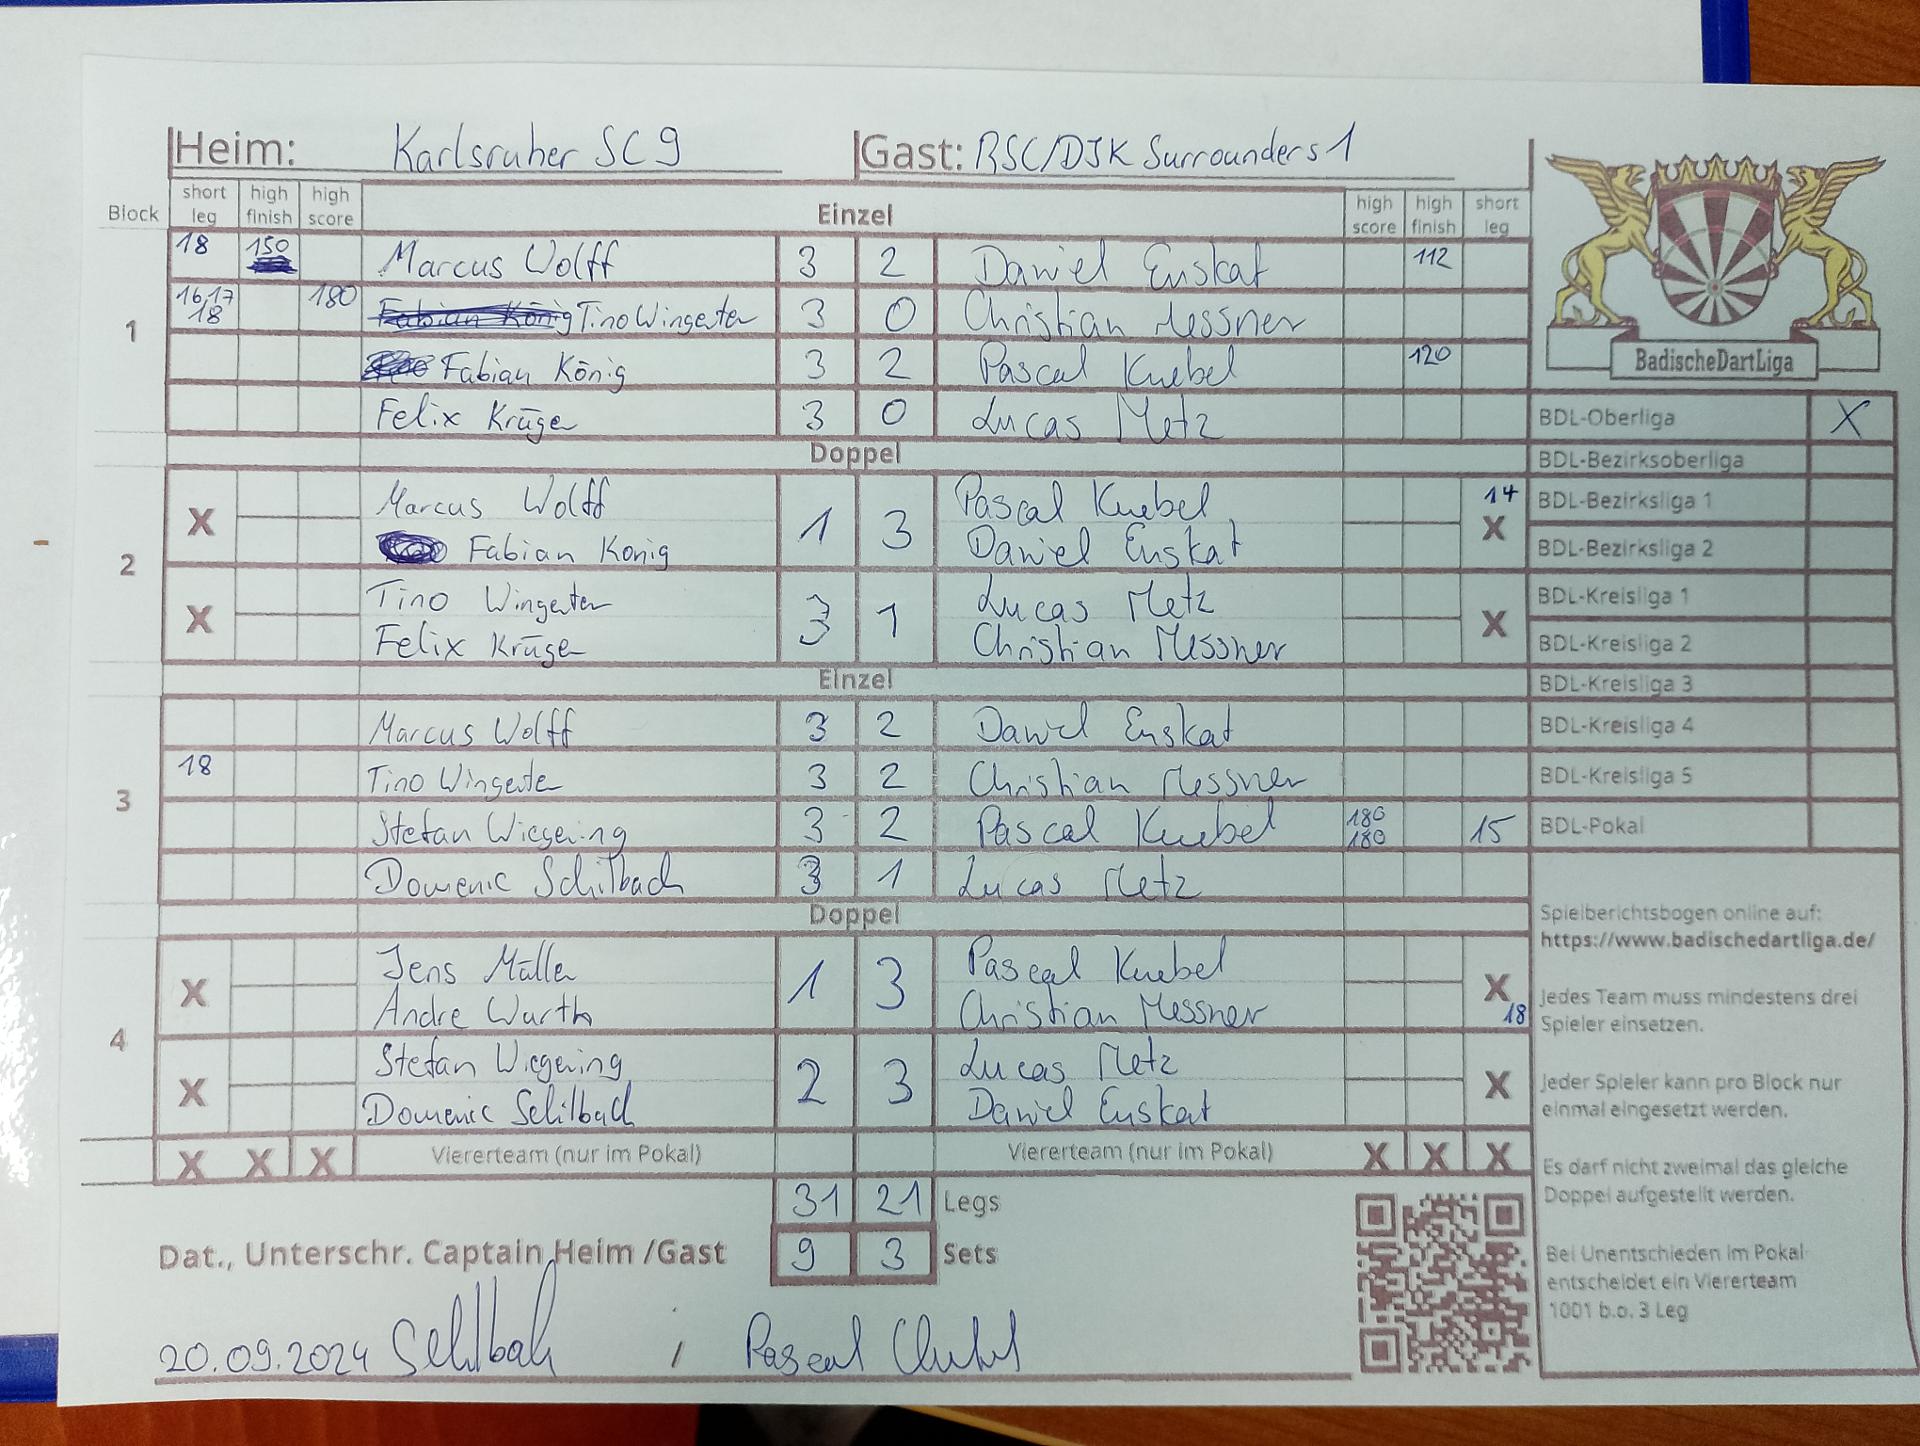 Heim: Karlsruher SC 9 Gast: RSC/DJK Surrounders 1
Block short leg high finish high score Einzel high score high finish short leg
18 150 Marcus Wolff 3 2 Daniel Enskat 112
1
16,17 18 180 Tino Wingerter 3 0 Christian Messner
Fabian König 3 2 Pascal Knebel 120
Felix Krüger 3 0 Lucas Metz
Doppel
2
X Marcus Wolff 1 3 Pascal Knebel 14 X
Fabian König Daniel Enskat
X Tino Wingerter 3 1 Lucas Metz X
Felix Krüger Christian Messner
Einzel
3
Marcus Wolff 3 2 Daniel Enskat
18 Tino Wingerter 3 2 Christian Messner
Stefan Wiegering 3 2 Pascal Knebel 180 180 15
Domenic Schilbach 3 1 Lucas Metz
Doppel
4
X Jens Müller 1 3 Pascal Knebel X 18
Andre Wurth Christian Messner
X Stefan Wiegering 2 3 Lucas Metz X
Domenic Schilbach Daniel Enskat
X X X Viererteam (nur im Pokal) Viererteam (nur im Pokal) X X X
31 21 Legs
9 3 Sets
Dat., Unterschr. Captain Heim /Gast
20.09.2024 Schilbach / Pascal Knebel
BadischeDartLiga
BDL-Oberliga X
BDL-Bezirksoberliga
BDL-Bezirksliga 1
BDL-Bezirksliga 2
BDL-Kreisliga 1
BDL-Kreisliga 2
BDL-Kreisliga 3
BDL-Kreisliga 4
BDL-Kreisliga 5
BDL-Pokal
Spielberichtsbogen online auf:
https://www.badischedartliga.de/
Jedes Team muss mindestens drei
Spieler einsetzen.
Jeder Spieler kann pro Block nur
einmal eingesetzt werden.
Es darf nicht zweimal das gleiche
Doppel aufgestellt werden.
Bei Unentschieden im Pokal
entscheidet ein Viererteam
1001 b.o. 3 Leg